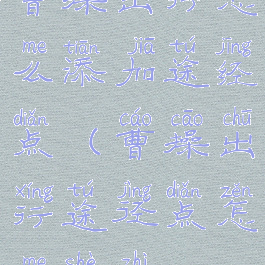 曹操出行怎
me tiān jiā tú jīng
么添加途经
diǎn cáo cāo chū
点（曹操出
xíng tú jìng diǎn zěn
行途径点怎
me shè zhì